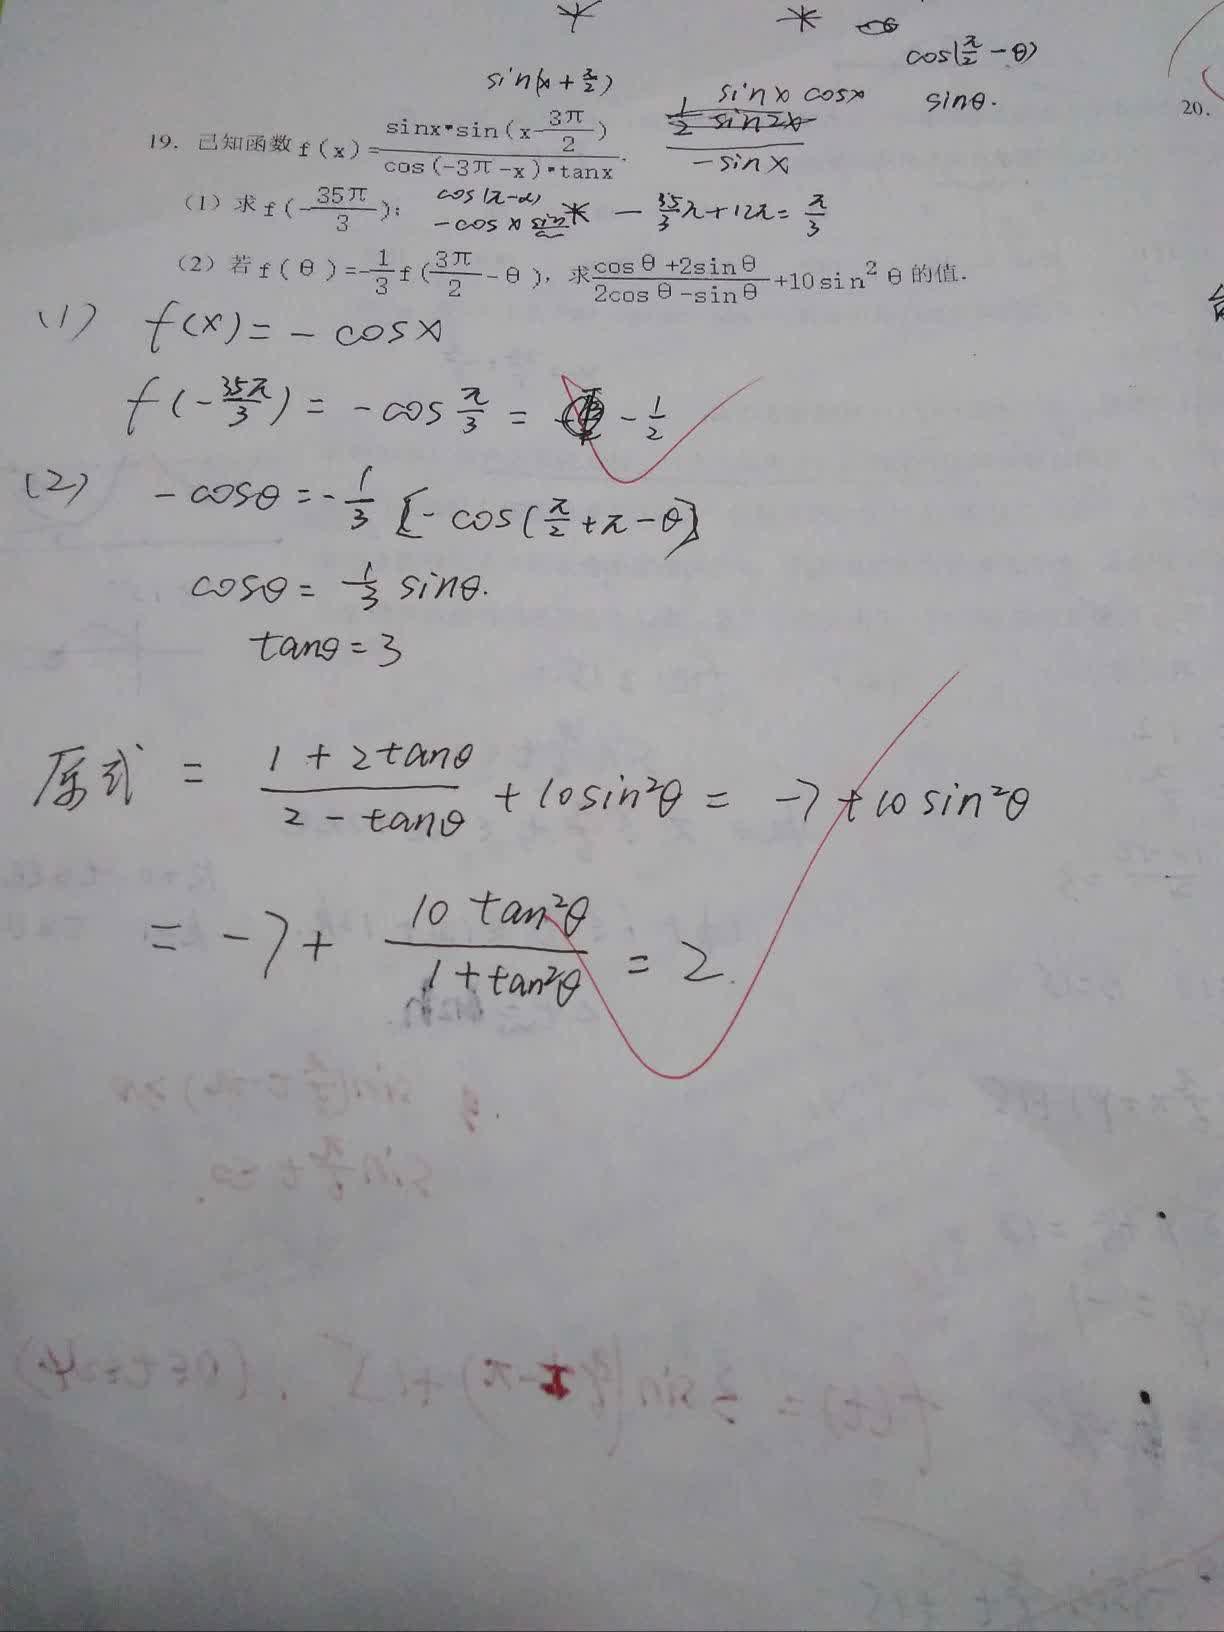 cos(π/2 - θ)
sin(x + π/2)
sinx cosx
sinθ.
20.
1/2 sin2x
-sinx
19. 已知函数f(x)=sinx•sin(x-3π/2)/cos(-3π-x)•tanx.
(1) 求f(-35π/3);
cos(π-α)
-cosx sinx
- 35/3π+12π= π/3
(2) 若f(θ)=-1/3f(3π/2-θ), 求cosθ+2sinθ/2cosθ-sinθ+10sin²θ的值.
(1) f(x)= - cosx
f(-35π/3) = -cos π/3 = -1/2
(2) -cosθ=-1/3 [-cos(π/2+π-θ)]
cosθ= 1/3 sinθ.
tanθ=3
原式 = 1+2tanθ/2-tanθ +10sin²θ = -7+10sin²θ
= -7+ 10tan²θ/1+tan²θ = 2.